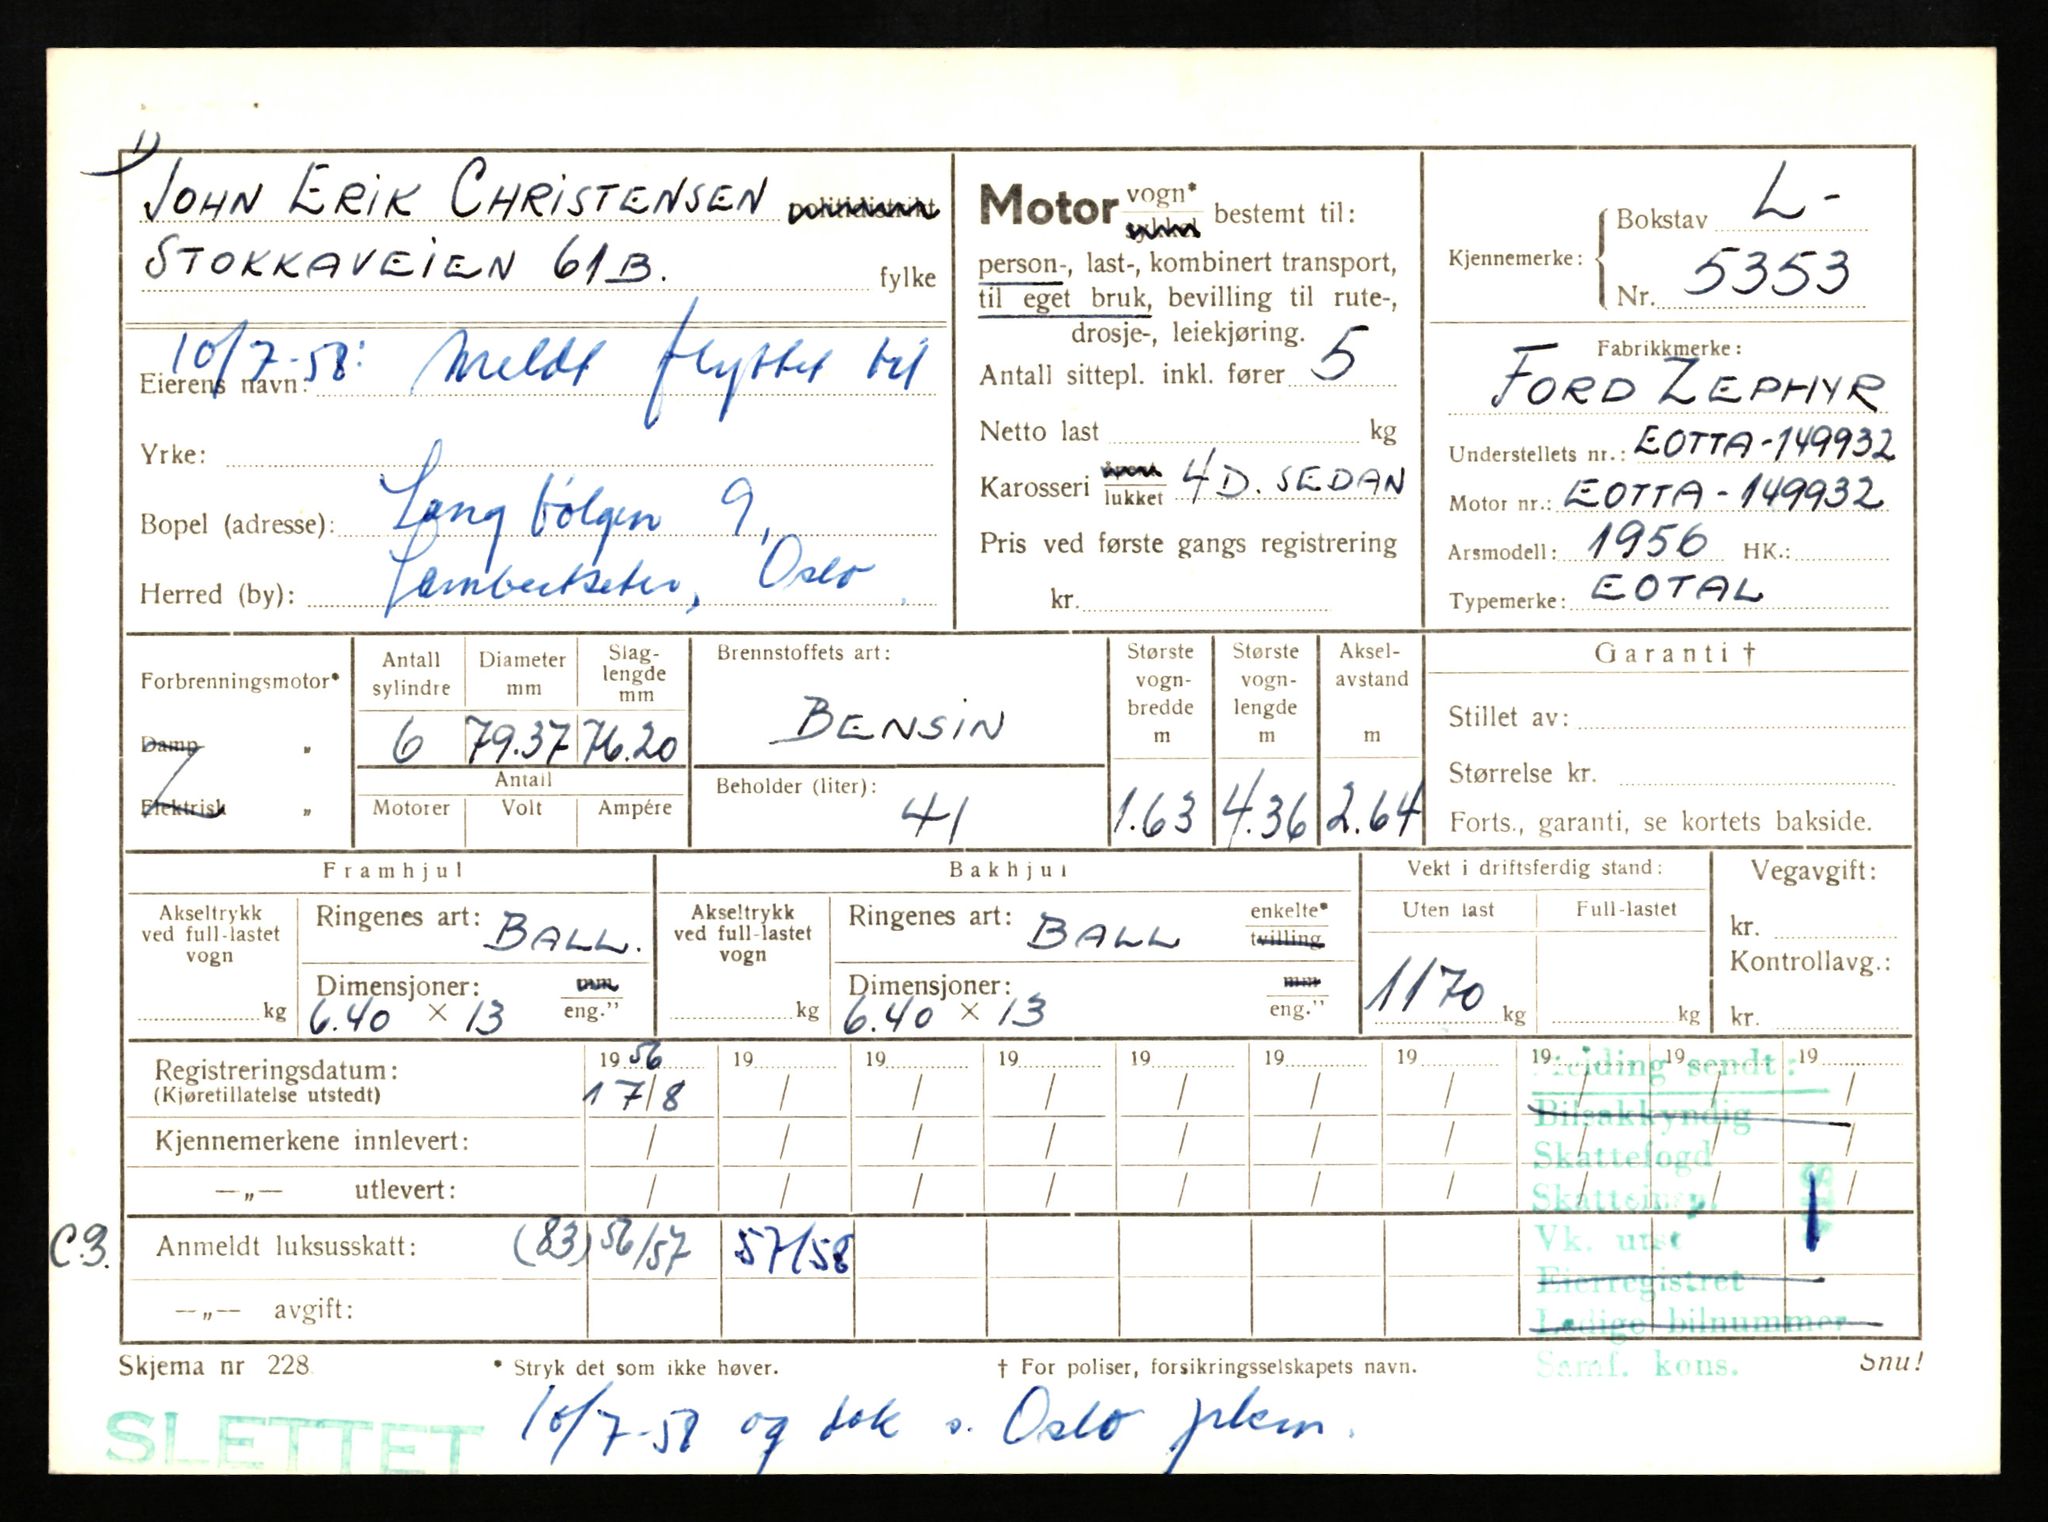 1)
JOHN ERIK CHRISTENSEN politidistrikt
STOKKAVEIEN 61B. fylke
10/7-58: Meldt flyttet til
Eierens navn:
Yrke:
Bopel (adresse): Langbølgen 9,
Herred (by): Lambertseter, Oslo
Motor vogn* sykkel bestemt til:
person-, last-, kombinert transport,
til eget bruk, bevilling til rute-,
drosje-, leiekjøring.
Antall sittepl. inkl. fører 5
Netto last kg
Karosseri åpent lukket 4D. SEDAN
Pris ved første gangs registrering
kr.
Kjennemerke: Bokstav L-
Nr. 5353
Fabrikkmerke:
FORD ZEPHYR
Understellets nr.: EOTTA-149932
Motor nr.: EOTTA-149932
Arsmodell: 1956 HK.:
Typemerke: EOTAL
Forbrenningsmotor*
Damp „
Elektrisk „
Antall sylindre
Diameter mm
Slaglengde mm
6 79.37 76.20
Antall
Motorer Volt Ampére
Brennstoffets art:
BENSIN
Beholder (liter):
41
Største vogn-bredde m
1.63
Største vogn-lengde m
4.36
Aksel-avstand m
2.64
Garanti †
Stillet av:
Størrelse kr.
Forts., garanti, se kortets bakside.
Framhjul
Akseltrykk ved full-lastet vogn
kg
Ringenes art: BALL.
Dimensjoner: mm
6.40 × 13 eng."
Bakhjul
Akseltrykk ved full-lastet vogn
kg
Ringenes art: BALL enkelte* tvilling
Dimensjoner: mm
6.40 × 13 eng."
Vekt i driftsferdig stand:
Uten last Full-lastet
1170 kg kg
Vegavgift:
kr.
Kontrollavg.:
kr.
Registreringsdatum: 19 56 19 19 19 19 19 19 19 19 19
(Kjøretillatelse utstedt) 17/8 / / / / / / / / /
Kjennemerkene innlevert: / / / / / / / / / /
—„— utlevert: / / / / / / / / / /
C.3. Anmeldt luksusskatt: (83) 56/57 57/58
—„— avgift:
Melding sendt:
Bilsakkyndig
Skattefogd
Skatteinsp.
Vk. utst
Eierregistret
Ledige bilnummer
Samf. kons.
Skjema nr 228 * Stryk det som ikke høver. † For poliser, forsikringsselskapets navn. Snu!
SLETTET 10/7-58 og tok s. Oslo